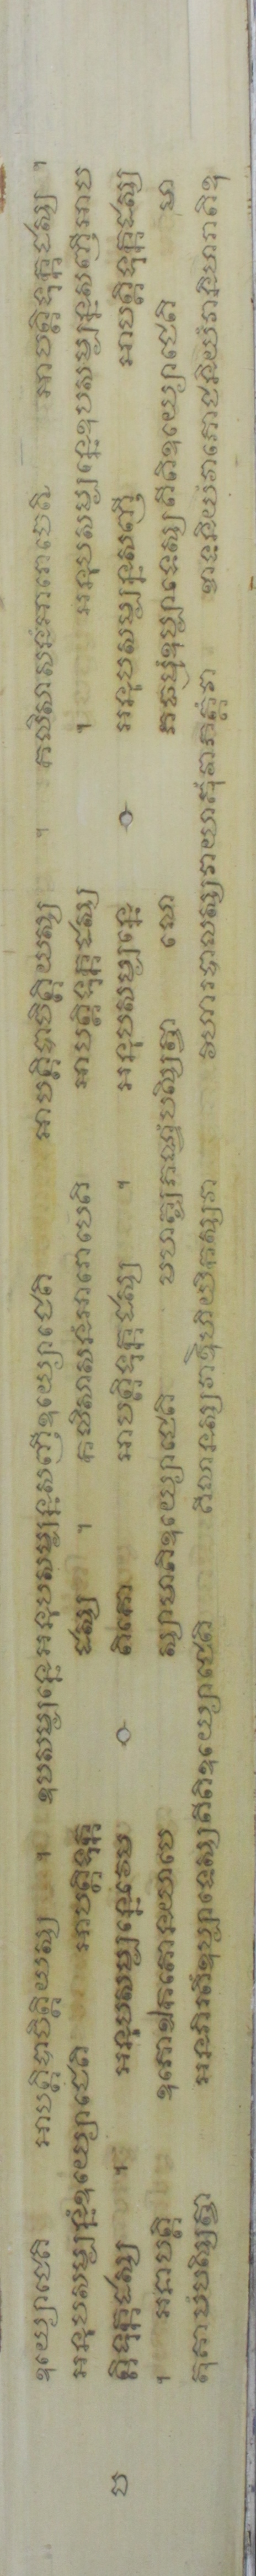 ឧយ្យោជេតិ អាបត្តិបាចិត្តិយស្ស ។ ឧបសម្បន្នេអនុបសម្បន្នសញ្ញីឧយ្យោជេតិ អាបត្តិបាចិត្តិយស្ស ។ កលិសាសនំអារោបេតិ អាបត្តិទុក្កដស្ស ។
អនុបសម្បន្នំឧយ្យោជេតិ អាបត្តិទុក្ក ដស្ស ។ កលិសាសនំអារោបេតិ អាបត្តិទុក្កដស្ស ។ អនុបសម្បន្នេឧបសម្បន្នសញ្ញីអាប
ប ត្តិទុក្កដស្ស ។ អនុបសម្បន្នេវេម តិកោ អាបត្តិទុក្កដស្ស ។ អនុបសម្បន្នេ អនុបសម្បន្នសញ្ញី អាបត្តិទុក្កដស្ស
។ អនាបត្តិ ឧភោឯកតោនយាបេ ស្សាមាតិឧយ្យោជេតិ មហគ្ឃំភណ្ឌំបស្សិត្វា លោ ភធម្មំឧប្បាទេស្សតីតិឧយ្យោជេតិ មា
តុគាមំបស្សិត្វា អនភិរតិំឧប្បាទេស្សតីតិឧយ្យោជេតិ គិលានស្សវាឱហិយ្យកស្សវា វិហារបាលស្សវាយាគុំវាភត្តំវា ខាទនីយំវាភោជនីយំវានីហរាតិឧ